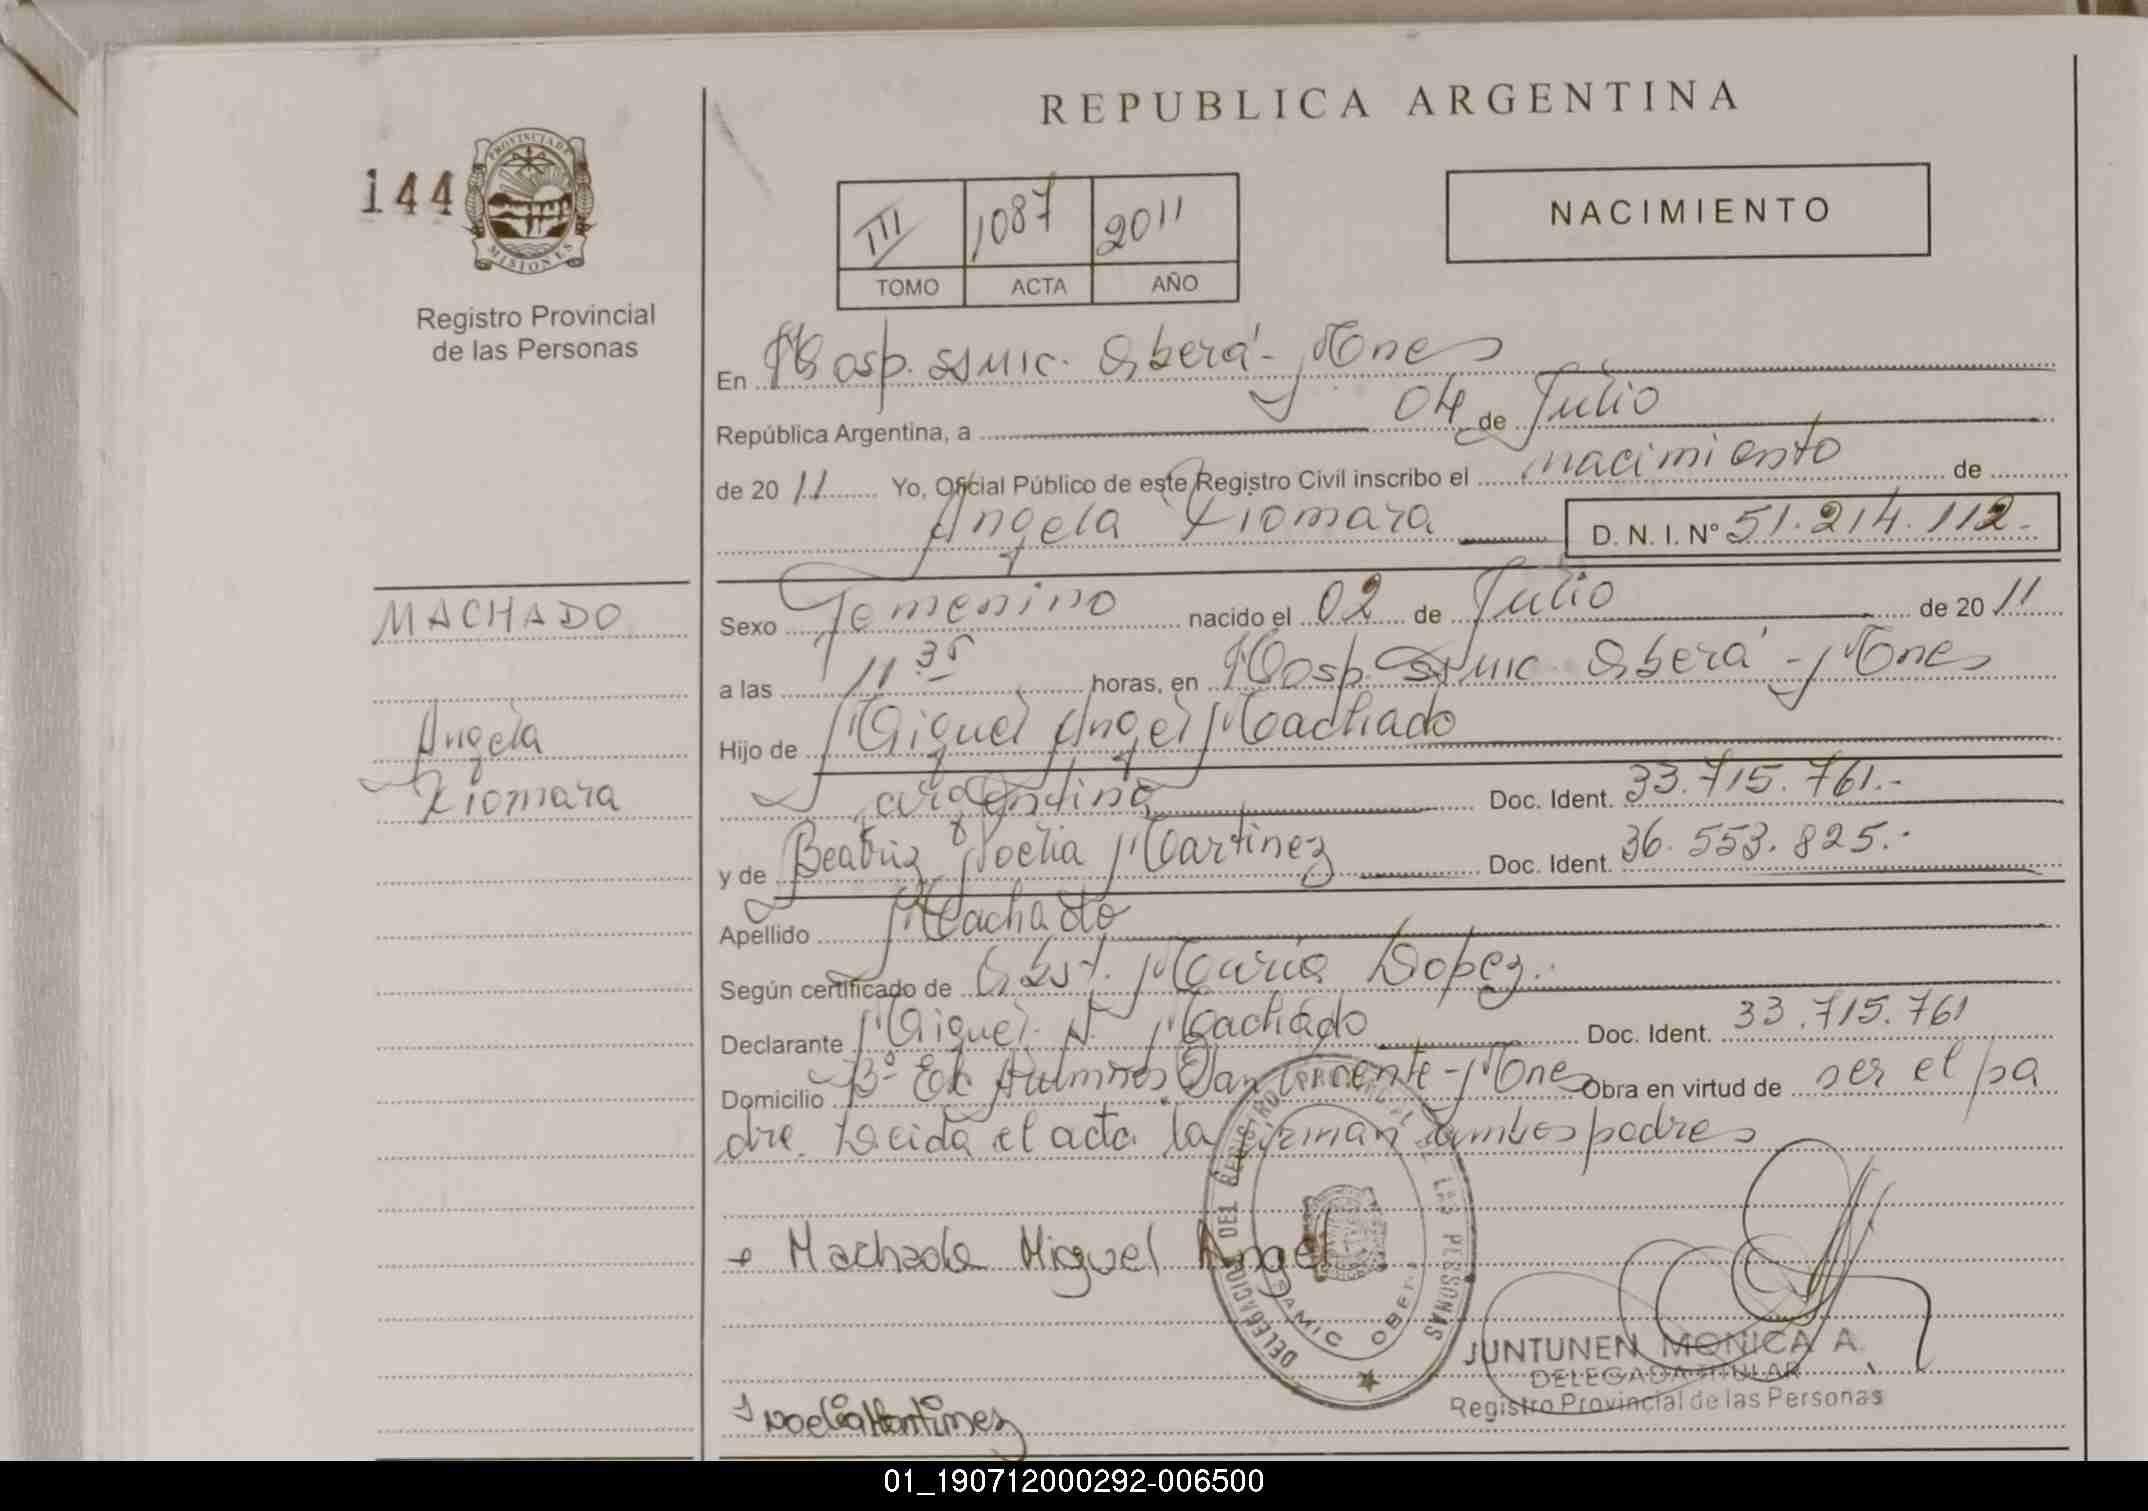 REPUBLICA ARGENTINA
144
PROVINCIA DE
MISIONES
Registro Provincial
de las Personas
III 1087 2011
TOMO ACTA AÑO
NACIMIENTO
En Hosp. SAMIC. Oberá - Mnes
República Argentina, a 04 de Julio
de 2011 Yo, Oficial Público de este Registro Civil inscribo el nacimiento de
Angela Xiomara D. N. I. Nº 51.214.112.-
MACHADO
Angela
Xiomara
Sexo Femenino nacido el 02 de Julio de 2011
a las 11 35 horas, en Hosp. SAMIC Oberá - Mnes
Hijo de Miguel Angel Machado
argentina Doc. Ident. 33.715.761.-
y de Beatriz Noelia Martinez Doc. Ident. 36.553.825.-
Apellido Machado
Según certificado de Obst. Maria Lopez.
Declarante Miguel A. Machado Doc. Ident. 33.715.761
Domicilio Bº San Vicente - Mnes Obra en virtud de ser el pa
dre. Leida el acta la firman ambos padres
Machado Miguel Angel
DELEGACION DEL REGISTRO PROVINCIAL DE LAS PERSONAS
SAMIC OBERA
JUNTUNEN MONICA A.
DELEGADA TITULAR
Registro Provincial de las Personas
Noelia Martinez
01_190712000292-006500